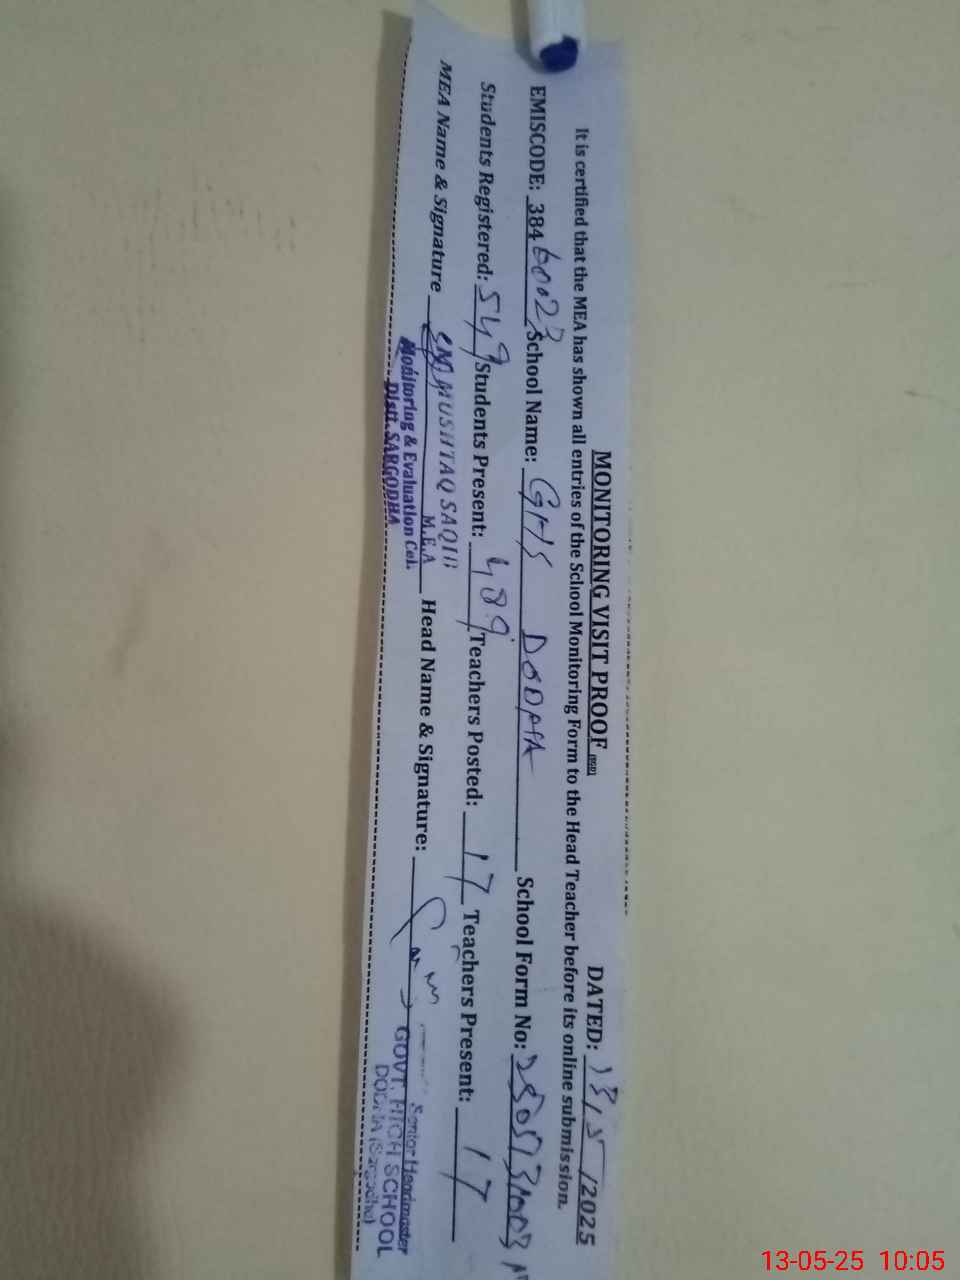 MONITORING VISIT PROOF DATED: 13/5/2025
It is certified that the MEA has shown all entries of the School Monitoring Form to the Head Teacher before its online submission.
EMISCODE: 38460023 School Name: GHS DODHA School Form No:
Students Registered: 549 Students Present: 489 Teachers Posted: 17 Teachers Present: 17
MEA Name & Signature Head Name & Signature:
MUSHTAQ SAQIB
M.E.A
Monitoring & Evaluation Cel.
Distt. SARGODHA
Senior Headmaster
GOVT. HIGH SCHOOL
DODHA (Sargodha)
13-05-25 10:05